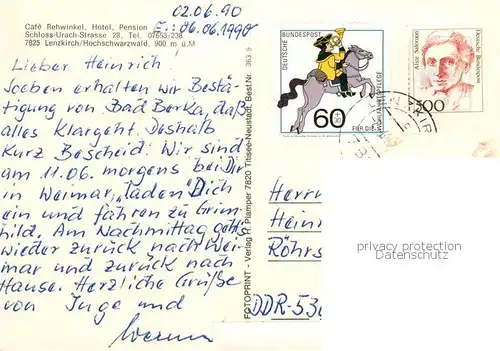 02.06.90
E.: 06.06.1990
Café Rehwinkel, Hotel, Pension
Schloss-Urach-Strasse 28, Tel. 07653/238
7825 Lenzkirch/Hochschwarzwald, 900 m ü.M
Lieber Heinrich!
Soeben erhalten wir Bestä-
tigung von Bad Berka, daß
alles klargeht. Deshalb
kurz Bescheid: Wir sind
am 11.06. morgens bei Dir
in Weimar, "laden" Dich
ein und fahren zu Grim-
hild. Am Nachmittag geht's
wieder zurück nach Wei-
mar und zurück nach
Hause. Herzliche Grüße
von Inge und
Werner
FOTOPRINT - Verlag H. Plamper 7820 Titisee-Neustadt, Best.Nr. 363 9
DEUTSCHE BUNDESPOST
60
FÜR DIE WOHLFAHRTSPFLEGE
Alice Salomon
Deutsche Bundespost
100
privacy protection
Datenschutz
Herrn
Hein
Röhrs
DDR-530